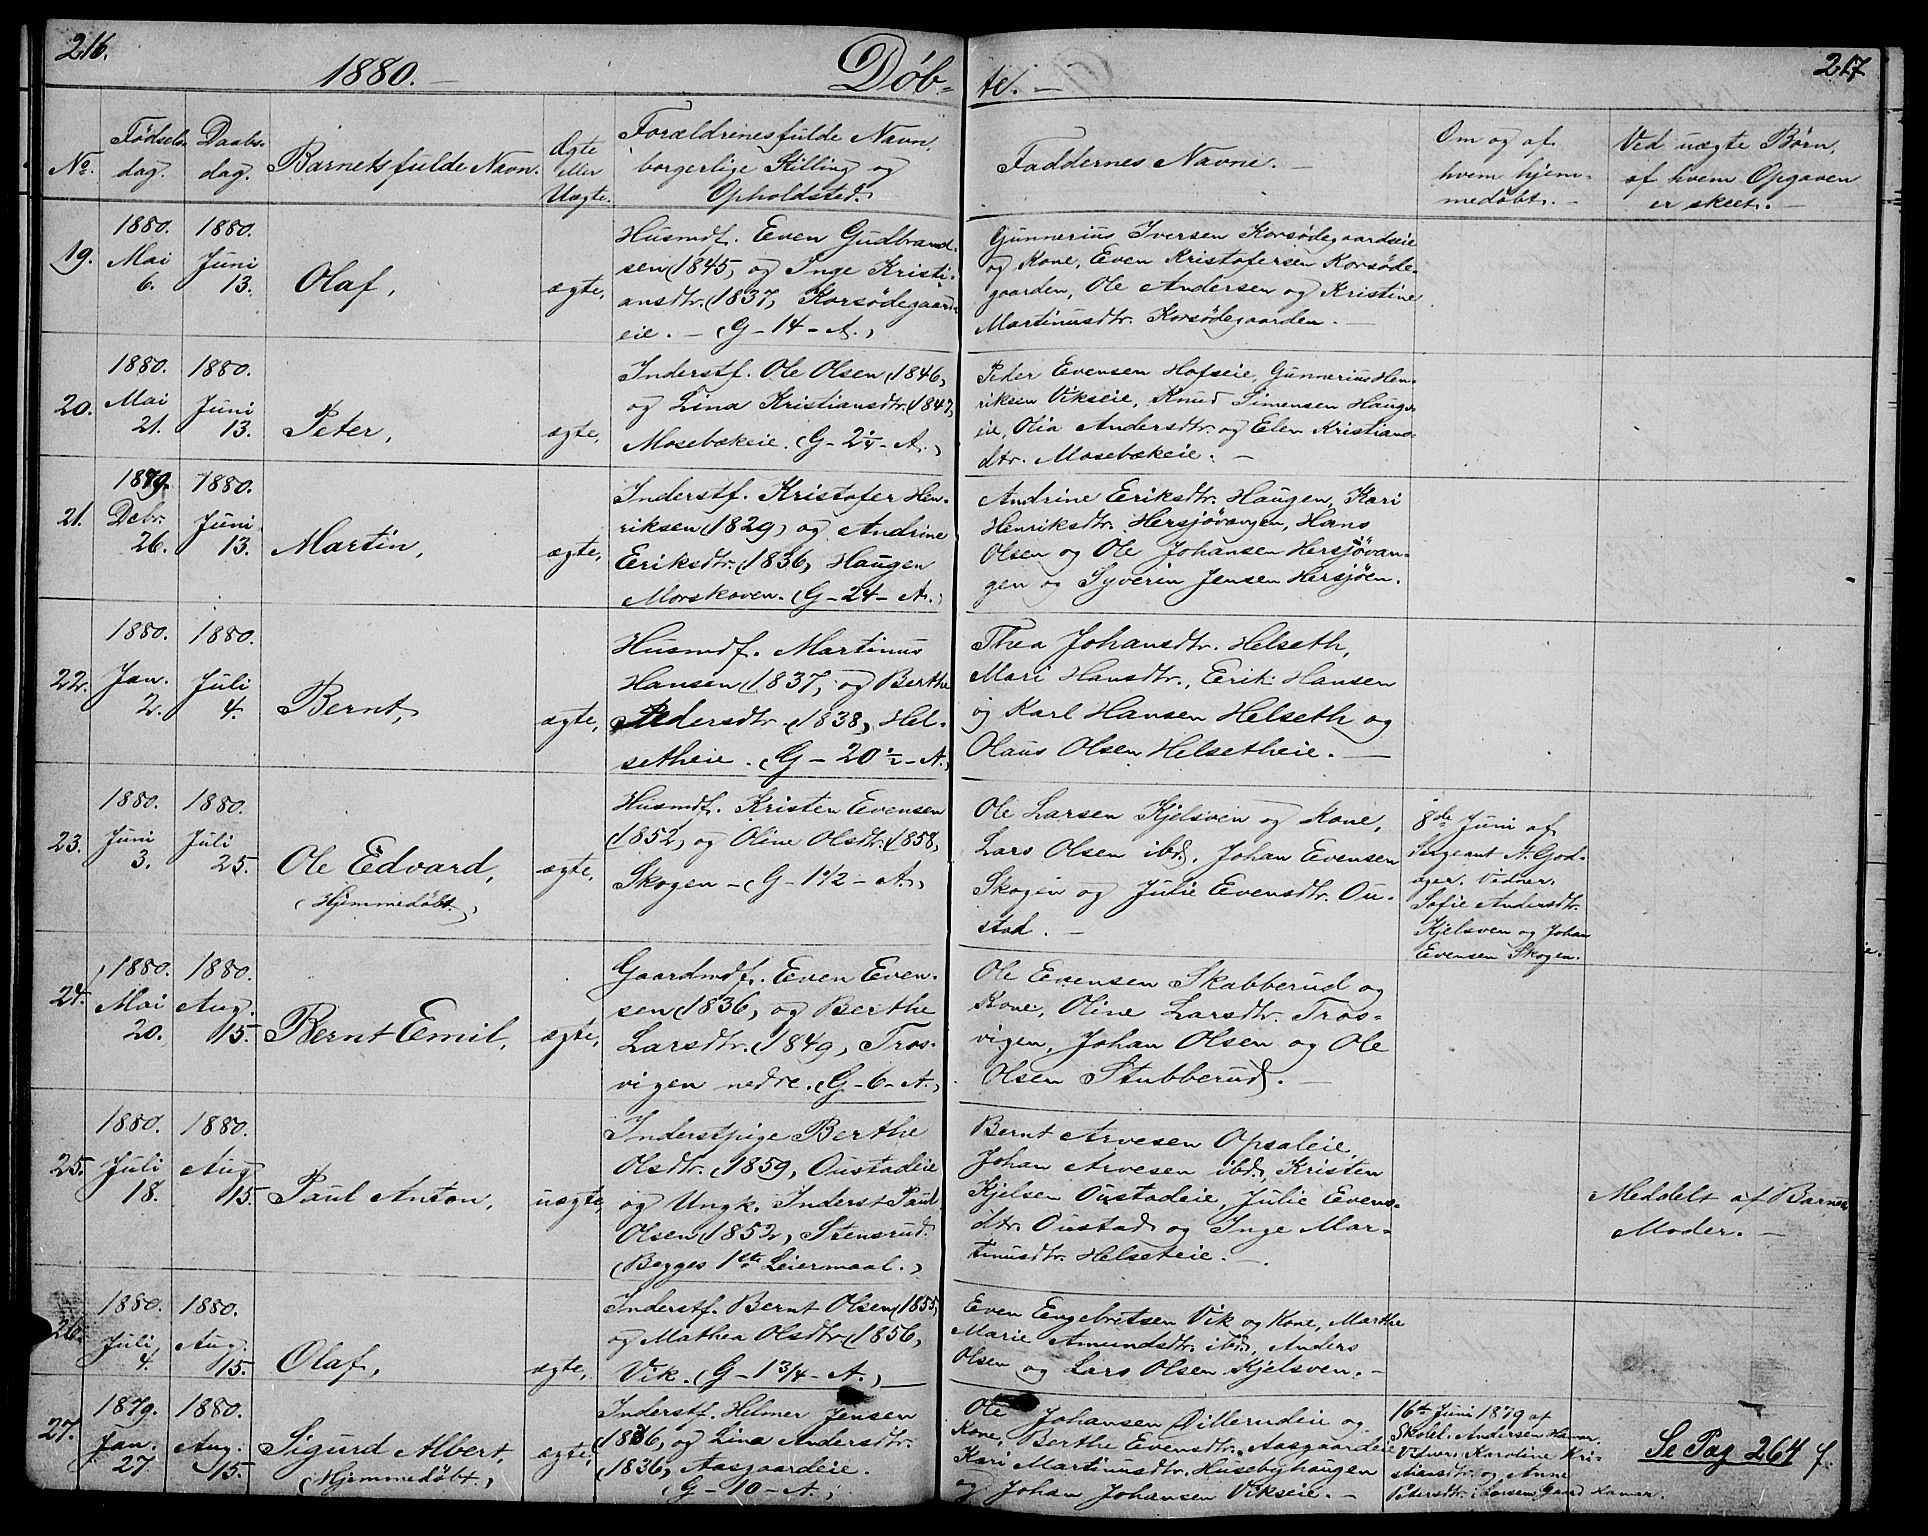 216.
1880. –
Døb-
te. –
217
No.
Fødsels-
dag.
Daabs-
dag.
Barnets fulde Navn.
Ægte
eller
Uægte.
Forældrenes fulde Navn,
borgerlige Stilling og
Opholdsted.
Faddernes Navne. –
Om og af
hvem hjem-
medøbt. –
Ved uægte Børn,
af hvem Opgaven
er skeet. –
19.
1880.
Mai
6.
1880.
Juni
13.
Olaf,
ægte,
Husmdf. Even Gudbrand-
sen (1845) og Inge Kristi-
ansdtr. (1837) Korsødegaard-
eie. – (G – 14 – A.)
Gunnerius Iversen Korsødegaardseie
og Kone, Even Kristofersen Korsøde-
gaarden, Ole Andersen og Kristine
Martinusdtr. Korsødegaarden. –
20.
1880.
Mai
21.
1880.
Juni
13.
Peter,
ægte,
Inderstf. Ole Olsen (1846)
og Lina Kristiansdtr. (1847)
Mosebækeie. (G – 2¼ – A.)
Peder Evensen Hofseie, Gunnerius Hen-
riksen Vikseie, Knud Simensen Haugs-
eie, Olia Andersdtr. og Elen Kristians-
dtr. Mosebækeie. –
21.
1879.
Debr.
26.
1880.
Juni
13.
Martin,
ægte,
Inderstf. Kristofer Hen-
riksen (1829) og Andrine
Eriksdtr. (1836) Haugen
Morskoven. (G – 24 – A.)
Andrine Eriksdtr. Haugen, Kari
Henriksdtr. Hersjøvangen, Hans
Olsen og Ole Johansen Hersjøvan-
gen og Syverin Jensen Hersjøen.
22.
1880.
Jan.
2.
1880.
Juli
4.
Bernt,
ægte,
Husmdf. Martinus
Hansen (1837) og Berthe
Pedersdtr. (1838) Hel-
setheie. (G – 20½ – A.)
Thea Johansdtr. Helseth,
Mari Hansdtr., Erik Hansen
og Karl Hansen Helseth og
Olaus Olsen Helsetheie. –
23.
1880.
Juni
3.
1880.
Juli
25.
Ole Edvard,
(Hjemmedøbt.)
ægte,
Husmdf. Kristen Evensen
(1852) og Oline Olsdtr. (1858)
Skogen – (G – 1½ – A.)
Ole Larsen Kjelsven og Kone,
Lars Olsen ibd., Johan Evensen
Skogen og Julie Evensdtr. Ou-
stad. –
8de Juni af
Sergeant A. God-
ager. Vidner.
Sofie Andersdtr.
Kjelsven og Johan
Evensen Skogen.
24.
1880.
Mai
20.
1880.
Aug.
15.
Bernt Emil,
ægte,
Gaardmdf. Even Even-
sen (1836) og Berthe
Larsdtr. (1849) Tros-
vigen nedre. (G – 6 – A.)
Ole Evensen Skabberud og
Kone, Oline Larsdtr. Tros-
vigen, Johan Olsen og Ole
Olsen Stubberud. –
25.
1880.
Juli
18.
1880.
Aug.
15.
Paul Anton,
uægte,
Inderstpige Berthe
Olsdtr. (1859) Oustadeie
og Ungk. Inderst Paul
Olsen (1852) Stensrud.
(Begges 1ste Leiermaal.)
Bernt Arvesen Opsaleie,
Johan Arvesen ibd., Kristen
Kjelsen Oustadeie, Julie Evens-
dtr. Oustad og Inge Mar-
tinusdtr. Helseteie. –
Meddelt af Barnets
Moder. –
26.
1880.
Juli
4.
1880.
Aug.
15.
Olaf,
ægte,
Inderstf. Bernt Olsen (1855)
og Mathea Olsdtr. (1856)
Vik. (G – 1¾ – A.)
Even Engebretsen Vik og Kone, Marthe
Marie Amundsdtr. ibd., Anders
Olsen og Lars Olsen Kjelsven. –
27.
1879.
Jan.
27
1880.
Aug.
15.
Sigurd Albert,
(Hjemmedøbt.)
ægte,
Inderstf. Helmer Jensen
(1836) og Lina Andersdtr.
(1836) Aasgaardeie.
(G – 10 – A.)
Ole Johansen Dillerudeie og
Kone, Berthe Evensdtr. Aasgaardeie
Kari Martinusdtr. Husebyhaugen
og Johan Johansen Vikseie. –
16de Juni 1879 af
Skolel. Andersen Hamar.
Vidner Karoline Kri-
stiansdtr. og Anne
Petersdtr. Larsen Gaard Hamar.
Se Pag 264 f.